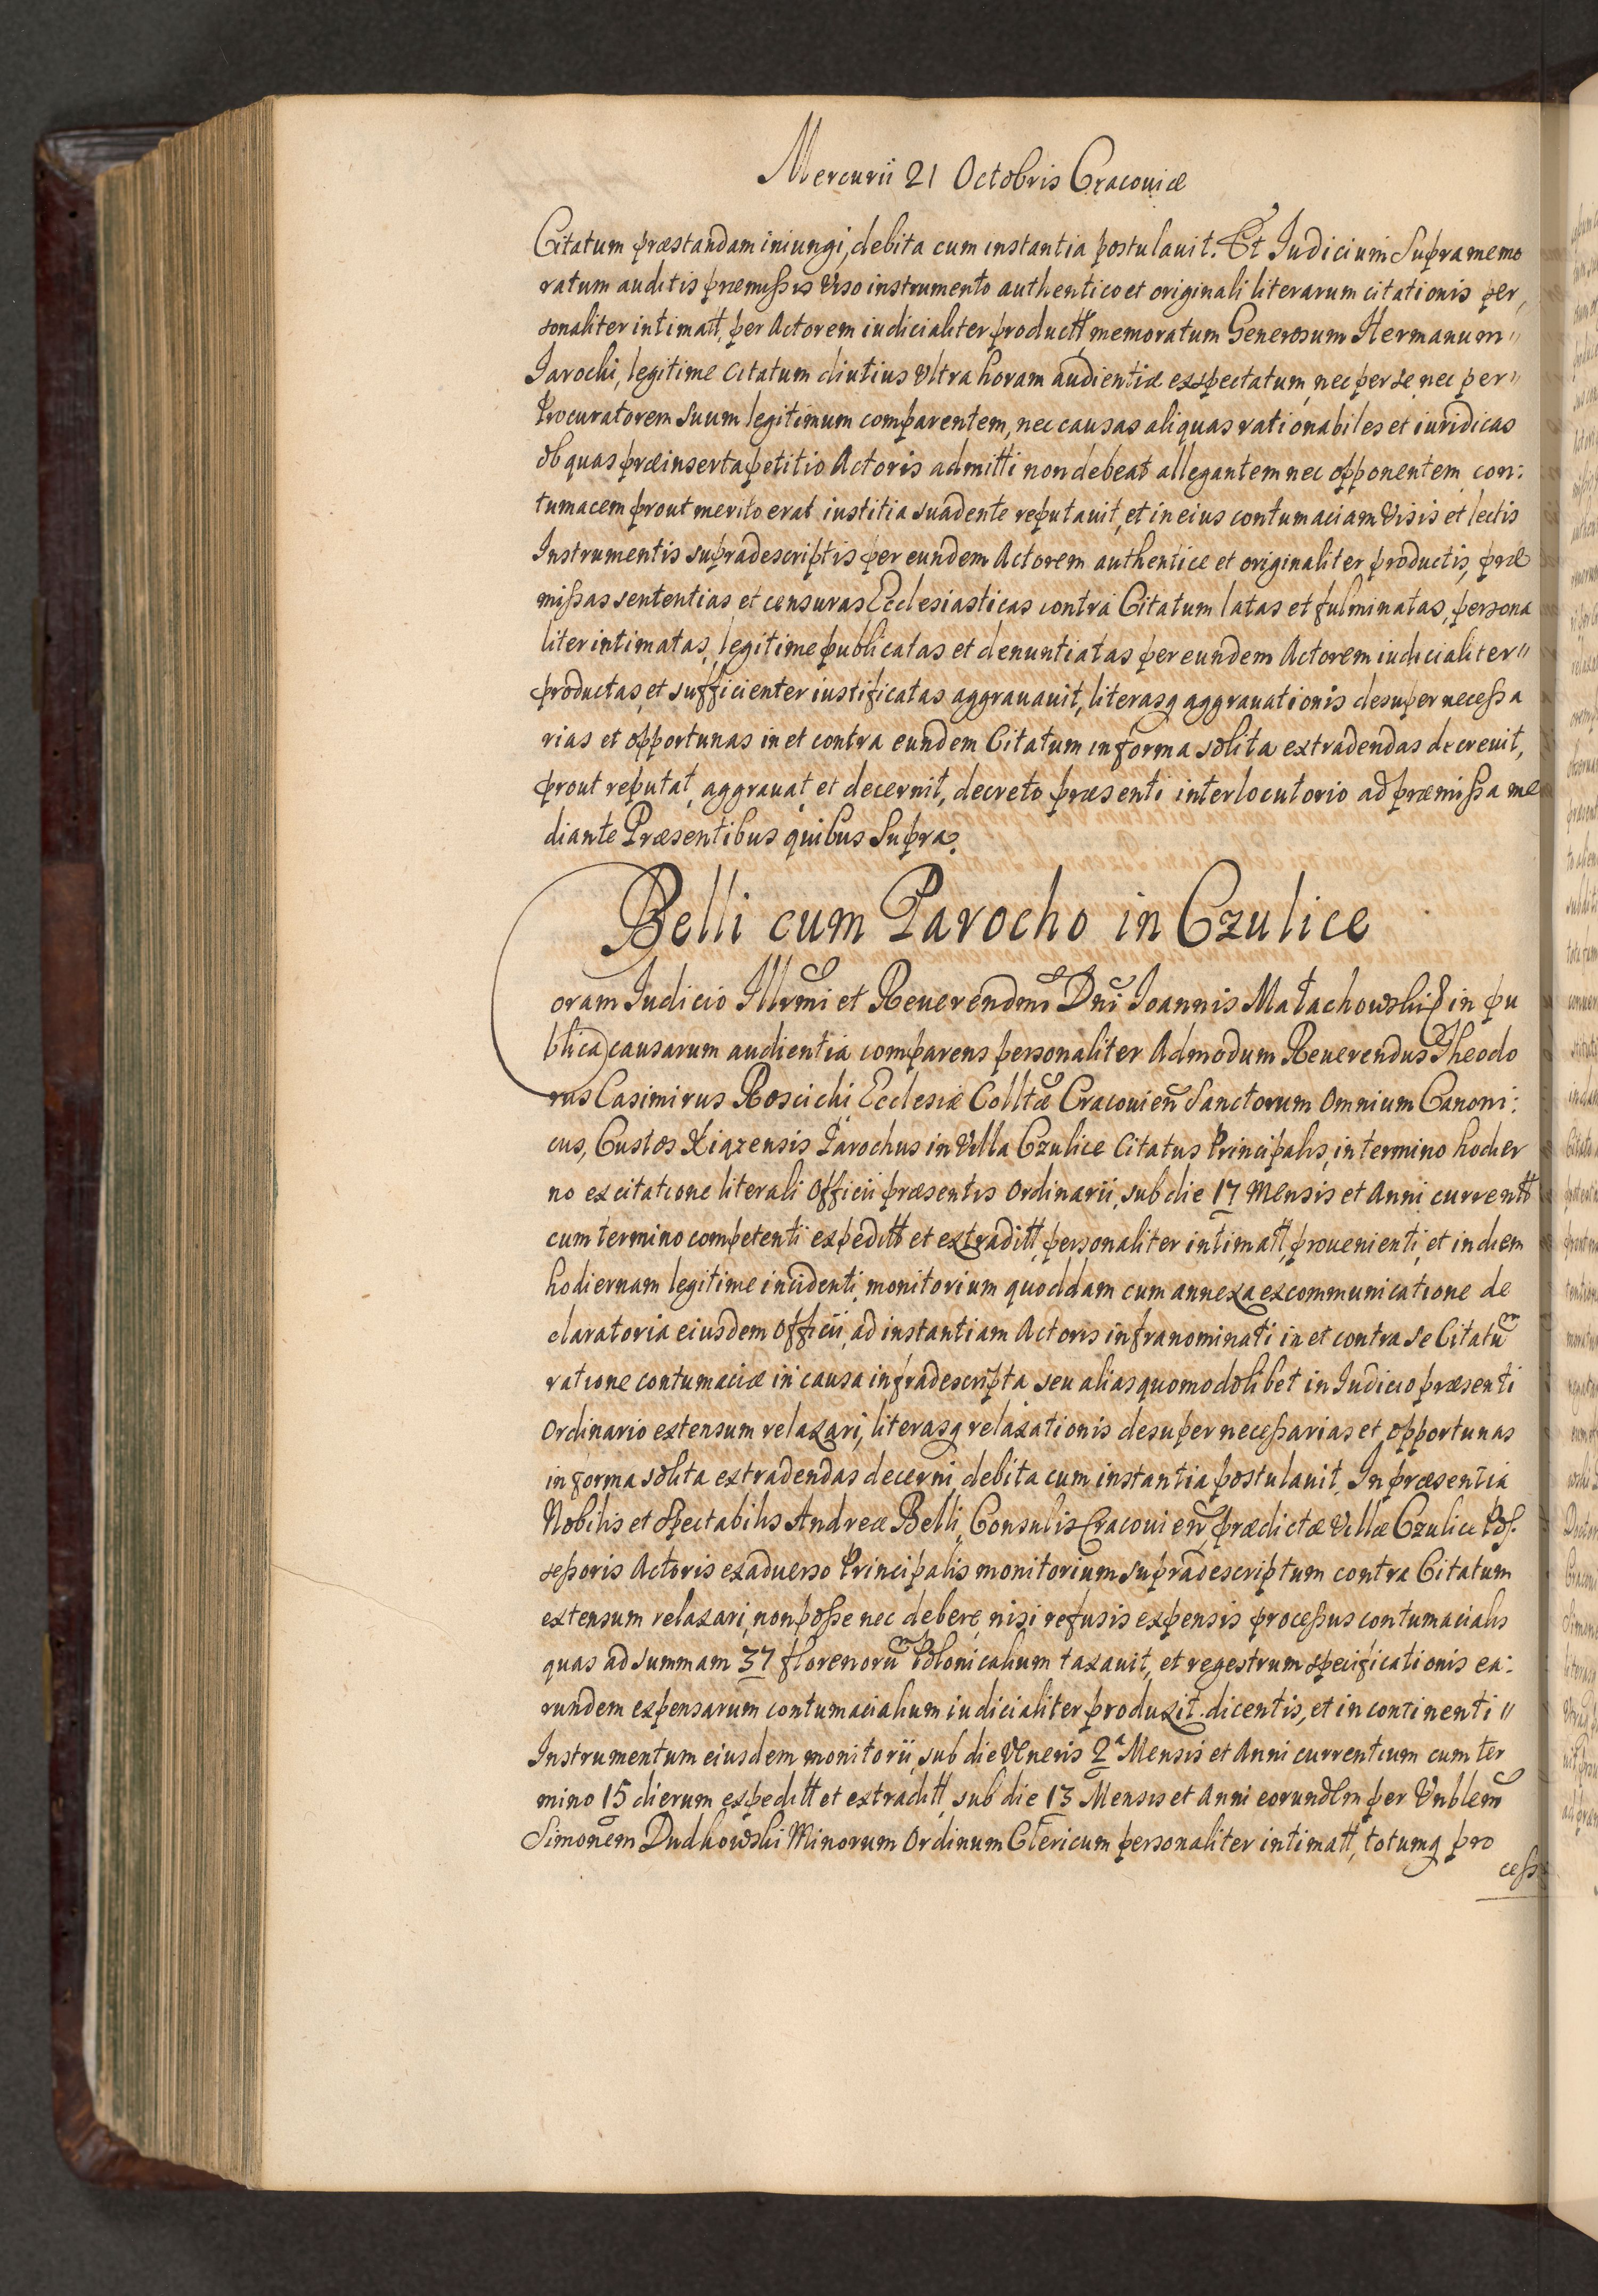 Mercurii 21 Octobris Cracouiæ
Citatum præstandam iniungi, debita cum instantia postulauit. Et Iudicium Supramemo
ratum auditis præmissis viso instrumento authentico et originali literarum citationis per,
sonaliter intimatt, per Actorem iudicialiter productt, memoratum Generosum Hermanum"
Jarocki, legitime Citatum diutius Vltra horam audientiæ exspectatum, nec per se, nec per"
Procuratorem suum legitimum comparentem, nec causas aliquas rationabiles et iuridicas
ob quas præinserta petitio Actoris admitti non debeat allegantem nec opponentem con:
tumacem prout merito erat iustitia suadente reputauit, et in eius contumaciam Visis et lectis
Instrumentis supradescriptis per eundem Actorem authentice et originaliter productis, præ
missas sententias et censuras Ecclesiasticas contra Citatum latas et fulminatas, persona
liter intimatas, legitime publicatas et denuntiatas per eundem Actorem iudicialiter"
productas, et sufficienter iustificatas aggrauauit, literasq aggrauationis desuper necessa
rias et opportunas in et contra eundem Citatum in forma solita extradendas decreuit,
prout reputat, aggrauat et decernit, decreto præsenti interlocutorio ad præmissa me
diante Præsentibus quibus Supra.
Belli cum Parocho in Czulice
Coram Iudicio Illrmi et Reuerendmi Dni Ioannis Małachowski in pu
blica causarum audientia comparens personaliter Admodum Reuerendus Theodo
rus Casimirus Roscicki, Ecclesiæ Colltæ Cracouien Sanctorum Omnium Canoni:
cus, Custos Xiązensis Parochus in Villa Czulice Citatus Principalis, in termino hodier
no ex citatione literali Officii præsentis Ordinarii, sub die 17 Mensis et Anni currentt
cum termino competenti expeditt et extraditt, personaliter intimatt, prouenienti, et in diem
hodiernam legitime incidenti, monitorium quoddam cum annexa excommunicatione de
claratoria eiusdem Officii, ad instantiam Actoris infranominati in et contra se Citatum
ratione contumaciæ in causa infradescripta, seu alias quomodolibet in Iudicio præsenti
Ordinario extensum relaxari, literasq relaxationis desuper necessarias et opportunas
in forma solita extradendas decerni, debita cum instantia postulauit. In præsentia
Nobilis et Spectabilis Andreæ Belli, Consulis Cracouien, prædictæ Villæ Czulice Pos.
sessoris Actoris exaduerso Principalis monitorium supradescriptum contra Citatum
extensum relaxari, non posse nec debere, nisi refusis expensis processus contumacialis
quas ad summam 37 florenorum Polonicalium taxauit, et regestrum specificationis ea:
rundem expensarum contumacialium iudicialiter produxit. dicentis, et in continenti"
Instrumentum eiusdem monitorii, sub die Veneris 2ª Mensis et Anni currentium cum ter
mino 15 dierum expeditt et extraditt, sub die 13 Mensis et Anni eorundem per Vnblem
Simonem Dudkowski Minorum Ordinum Clericum personaliter intimatt, totumq pro
cess